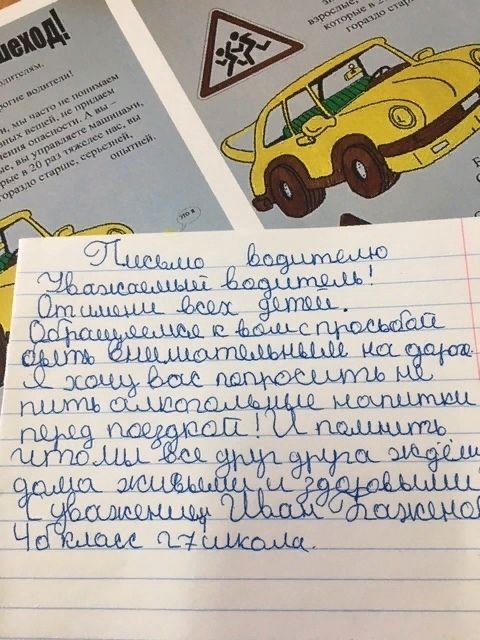 шеход!
одителям.
рогие водители!
и, мы часто не понимаем
ных вещей, не придаем
ения опасности. А вы –
ые, вы управляете машинами,
рые в 20 раз тяжелее нас, вы
гораздо старше, серьезней,
опытней.
взрослые,
которые в 2
гораздо старше
это я
Письмо водителю
Уважаемый водитель!
От имени всех детей.
Обращаемся к вам с просьбой
быть внимательным на дороге
Я хочу вас попросить не
пить алкогольные напитки
перед поездкой! И помнить
что мы все друг друга ждём
дома живыми и здоровыми
С уважением Иван Баженов
4б класс 27 школа.